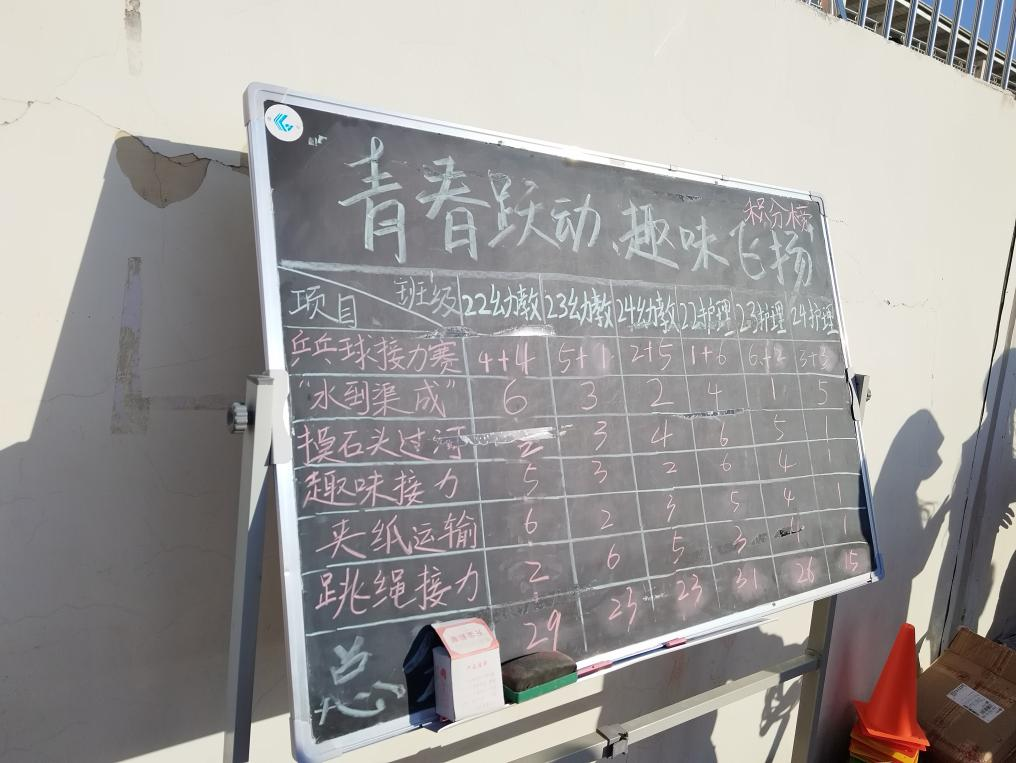 积分榜
青春跃动、趣味飞扬
项目 班级 22幼教 23幼教 24幼教 22护理 23护理 24护理
乒乓球接力赛 4+4 5+1 2+5 1+6 6+2 5+3
"水到渠成" 6 3 2 4 1 5
摸石头过河 2 3 4 6 5 1
趣味接力 5 3 2 6 4 1
夹纸运输 6 2 3 5 4 1
跳绳接力 2 6 5 3 4 1
总 29 23 23 31 26 15